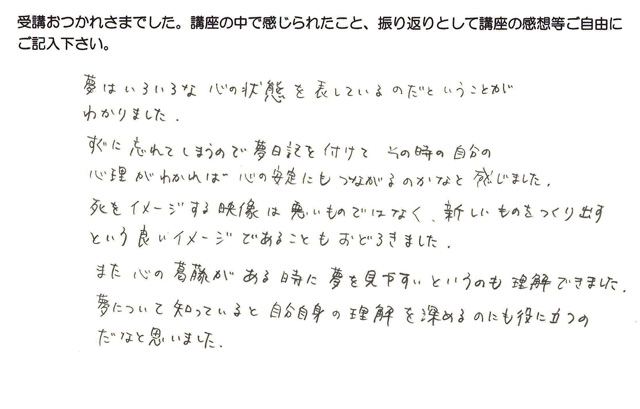 受講おつかれさまでした。講座の中で感じられたこと、振り返りとして講座の感想等ご自由に
ご記入下さい。
夢はいろいろな心の状態を表しているのだということが
わかりました.
すぐに忘れてしまうので夢日記を付けて その時の自分の
心理がわかれば心の安定にもつながるのかなと感じました.
死をイメージする映像は悪いものではなく、新しいものをつくり出す
という良いイメージであることもおどろきました.
また心の葛藤がある時に夢を見やすいというのも理解できました.
夢について知っていると自分自身の理解を深めるのにも役に立つの
だなと思いました.